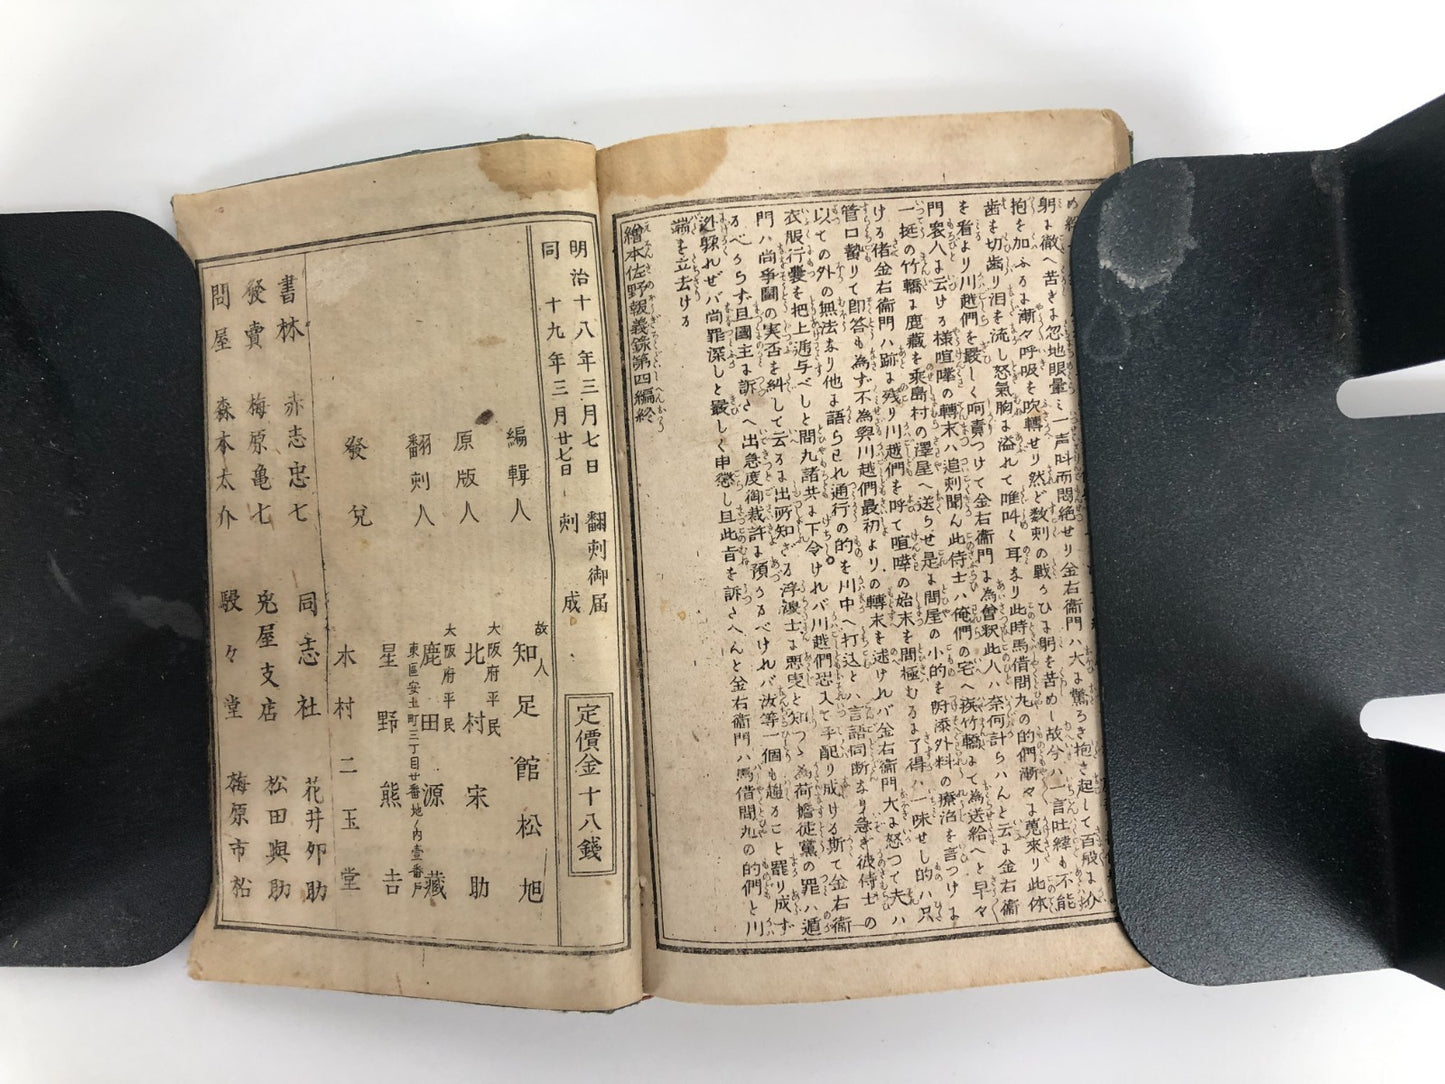 躬に徹へ苦きに忽地眼暈ミ一声叫而悶絶せり金右衞門ハ大に驚ろき抱き起して百般に介
抱を加ふるに漸々呼吸を吹轉せり然ど数刺の戰ひに躬を苦めし故今ハ一言吐緯も不能
歯を切歯り泪を流し怒氣胸に溢れて唯叫く耳なり此時馬借間九の的們漸々に蒐來り此体
を看より川越們を嚴しく呵責つけて金右衞門に為會釈此八ハ奈何計らハんと云に金右衞
門衾八に云ける様喧嘩の轉末ハ追刺聞ん此侍士ハ俺們の宅へ疾竹轎にて為送給へと早々
一挺の竹轎に鹿藏を乘島村の澤屋へ送らせ是に問屋の小的を附添外料の療治を言つけに
ける偖金右衞門ハ跡に残り川越們を呼て喧嘩の始末を問極むるに了得ハ一味せし的ハ只
管口勢りて即答も為ず不為與川越們最初よりの轉末を述けれバ金右衞門大に怒つて夫ハ
以ての外の無法なり他に語らせれ通行の的を川中へ打込とハ言語同断なり急ぎ彼侍士の
衣服行嚢を把上逓与べしと間九諸共に下令けれバ川越們恐入て手配り成ける斯て金右衞
門ハ尚爭鬪の実否を糾して云るに出所知ざる浮浪士に悪叟と知つゝ為荷擔徒黨の罪ハ遁
るべからず且國主に訴へ出急度御裁許に預かるべけれバ汝等一個も趨ること罷り成ず
迯躱れせバ尚罪深しと嚴しく申懲し且此旨を訴さへんと金右衞門ハ馬借間九の的們と川
端を立去ける
繪本佐野報義錄第四編終
明治十八年三月七日 翻刻御届
同 十九年三月廿七日 刻成
定價金十八錢
編輯人 故人 知足館松旭
原版人 大阪府平民 北村宋助
翻刻人 大阪府平民 鹿田源藏
東區安土町三丁目廿番地ノ内壹番戸
發兌 星野熊吉
木村二玉堂
書林 赤志忠七 同志社 花井卯助
發賣 梅原亀七 兎屋支店 松田與助
問屋 森本太介 駸々堂 梅原市松